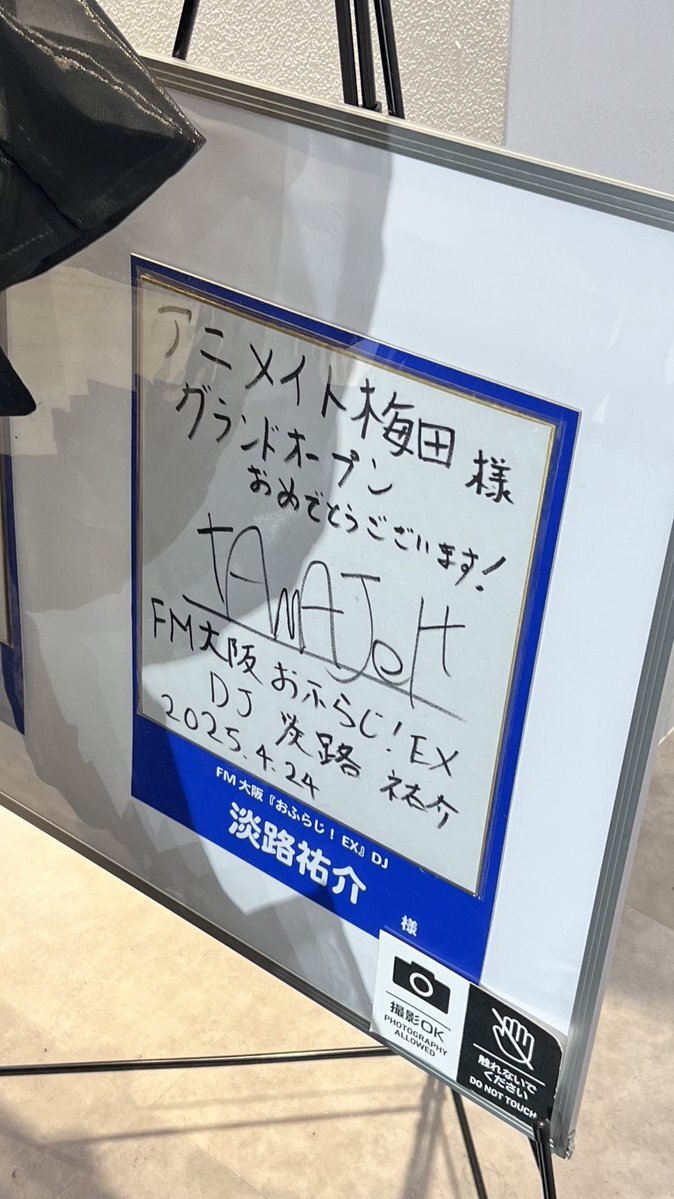 アニメイト梅田様
グランドオープン
おめでとうございます!
FM大阪 おふらじ!EX
DJ 淡路 祐介
2025.4.24
FM大阪『おふらじ! EX』DJ
淡路祐介
様
撮影OK
PHOTOGRAPHY
ALLOWED
触れないで
ください
DO NOT TOUCH